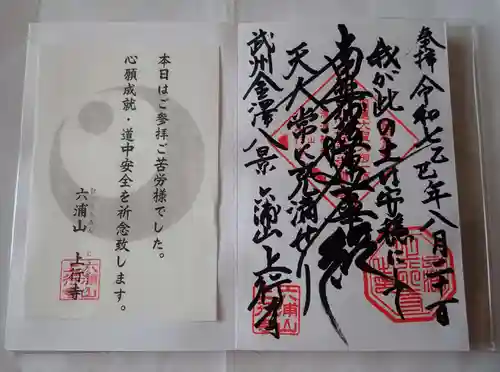 奉拝 令和七乙巳年八月二十一日
我が此の土は安穏にして
南無妙法蓮華経
天人常に充満せり
武州金澤八景 六浦山 上行寺
本日はご参拝ご苦労様でした。
心願成就・道中安全を祈念致します。
六浦山 上行寺